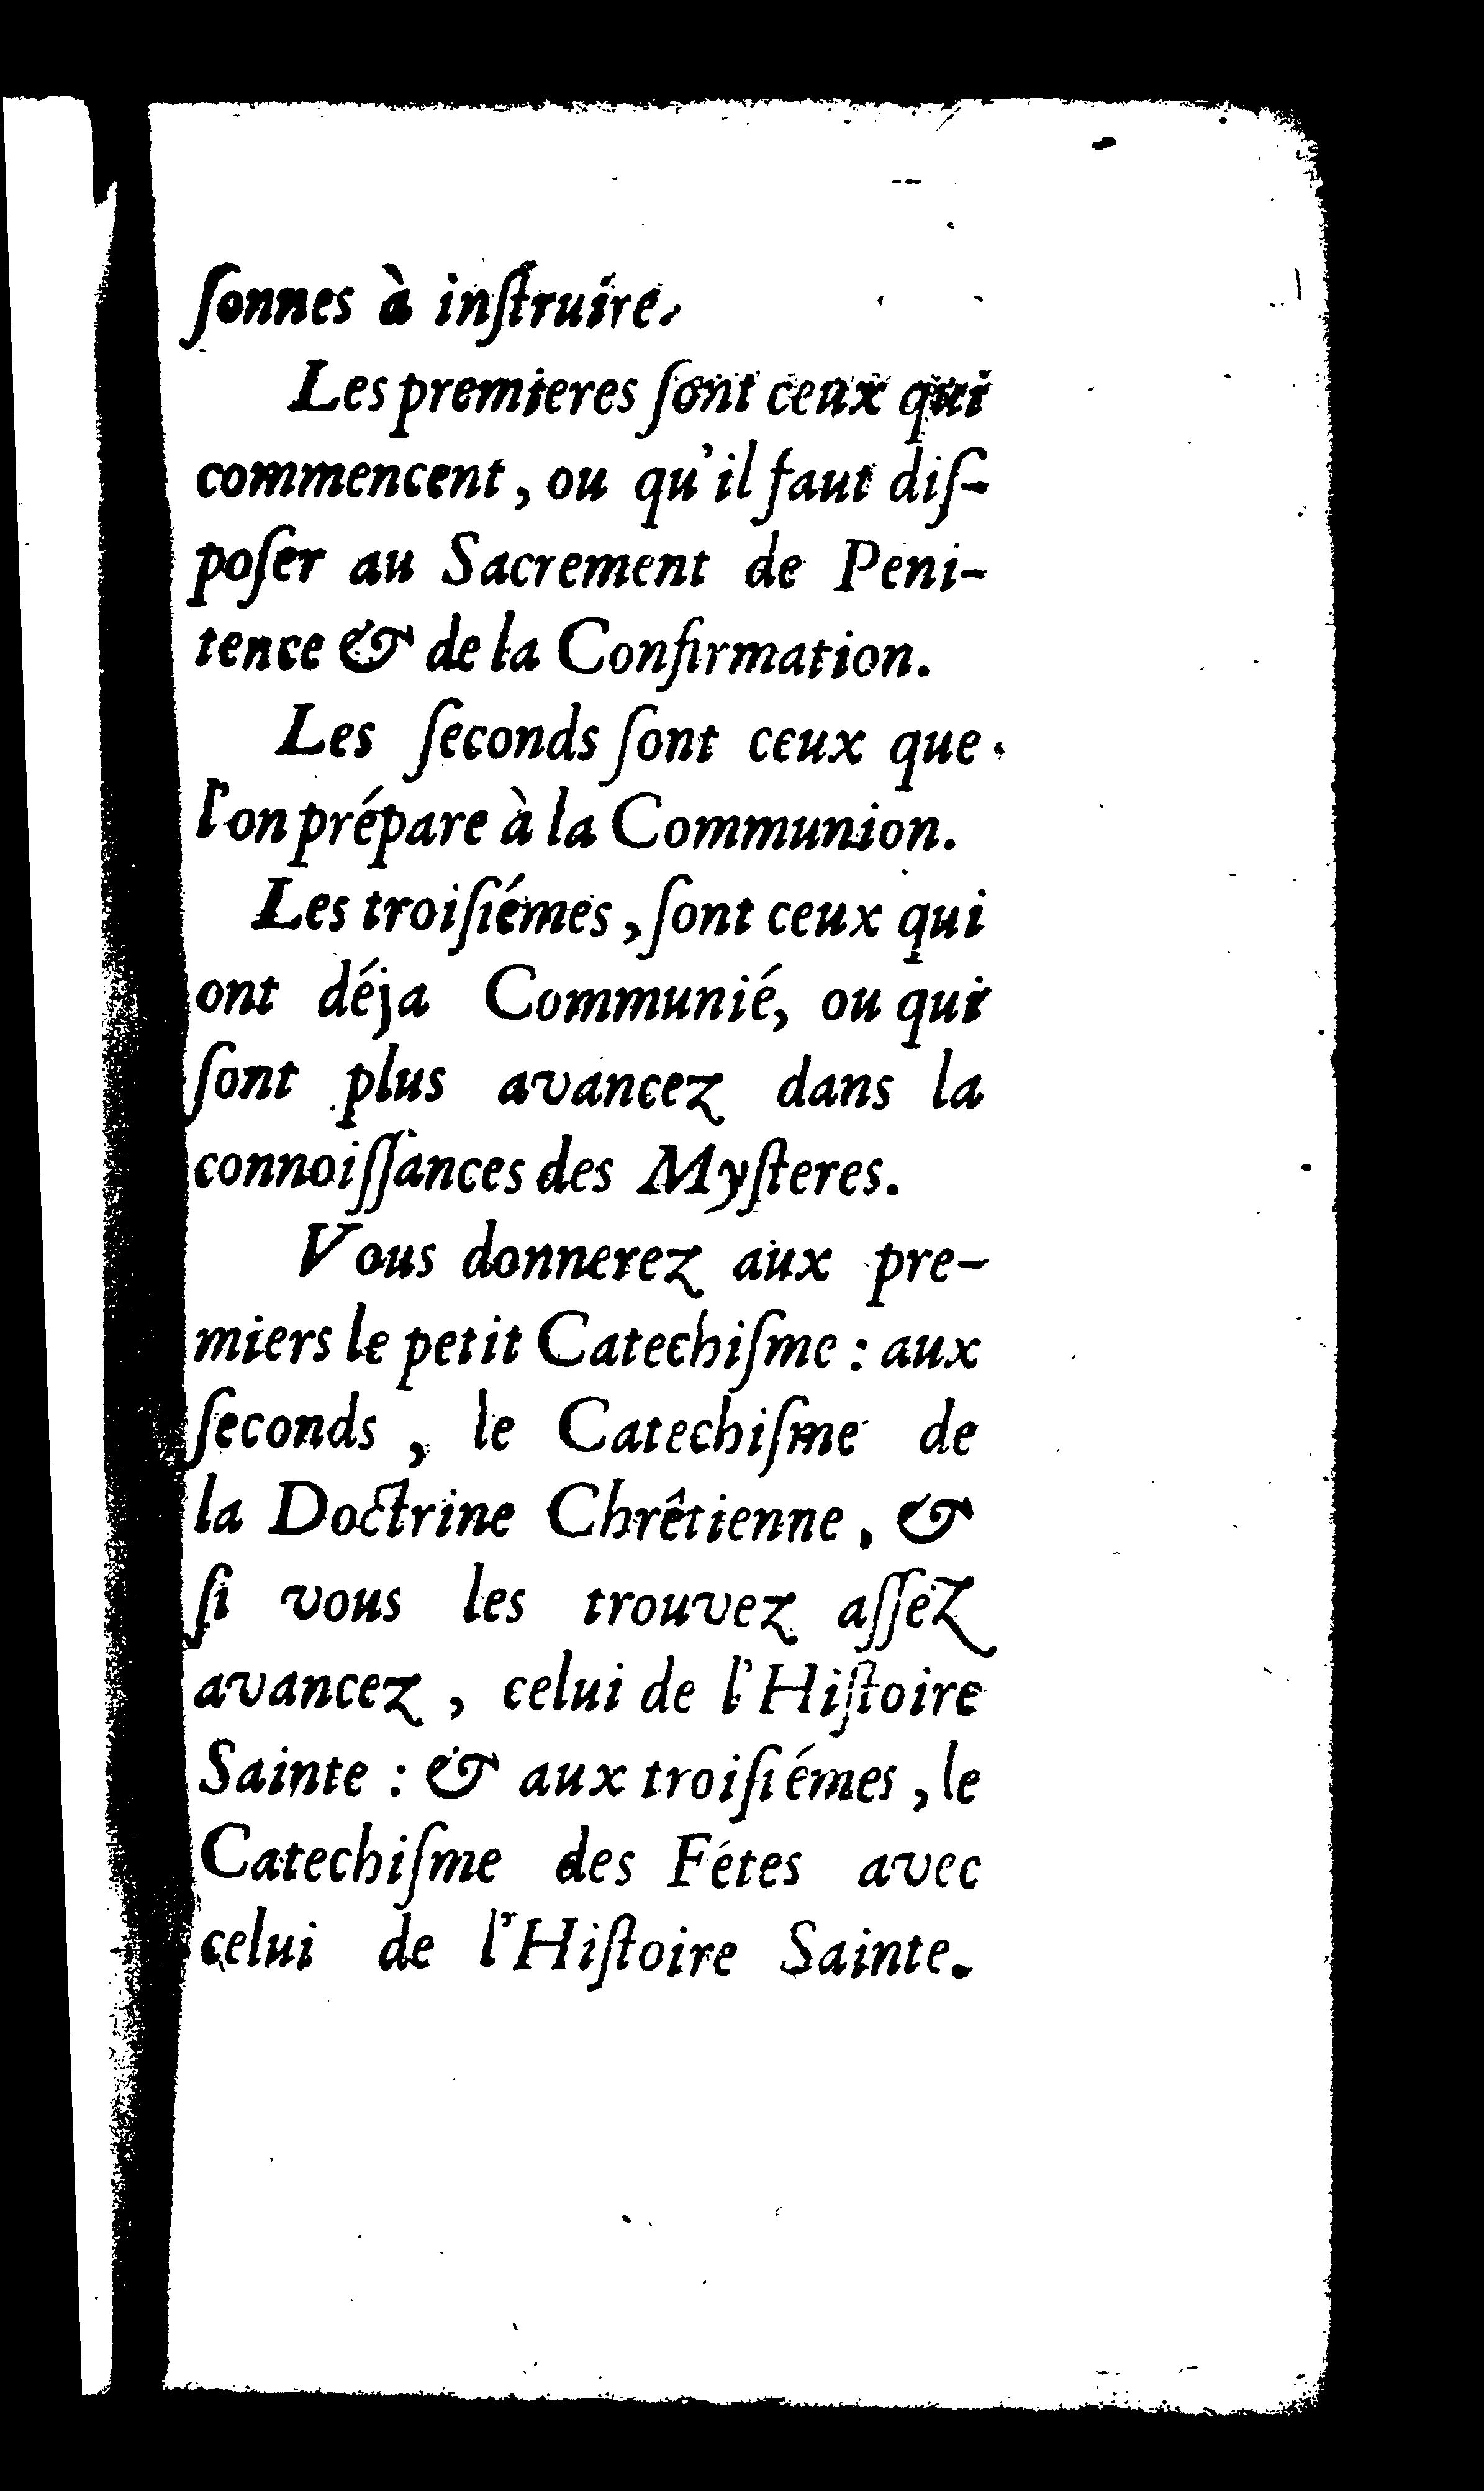 ſonnes à inſtruire.
Les premieres ſont ceux qui
commencent, ou qu'il faut diſ-
poſer au Sacrement de Peni-
tence & de la Confirmation.
Les ſeconds ſont ceux que
l'on prépare à la Communion.
Les troiſiémes, ſont ceux qui
ont déja Communié, ou qui
ſont plus avancez dans la
connoiſſances des Myſteres.
Vous donnerez aux pre-
miers le petit Catechiſme : aux
ſeconds, le Catechiſme de
la Doctrine Chrêtienne, &
ſi vous les trouvez aſſez
avancez, celui de l'Hiſtoire
Sainte : & aux troiſiémes, le
Catechiſme des Fétes avec
celui de l'Hiſtoire Sainte.